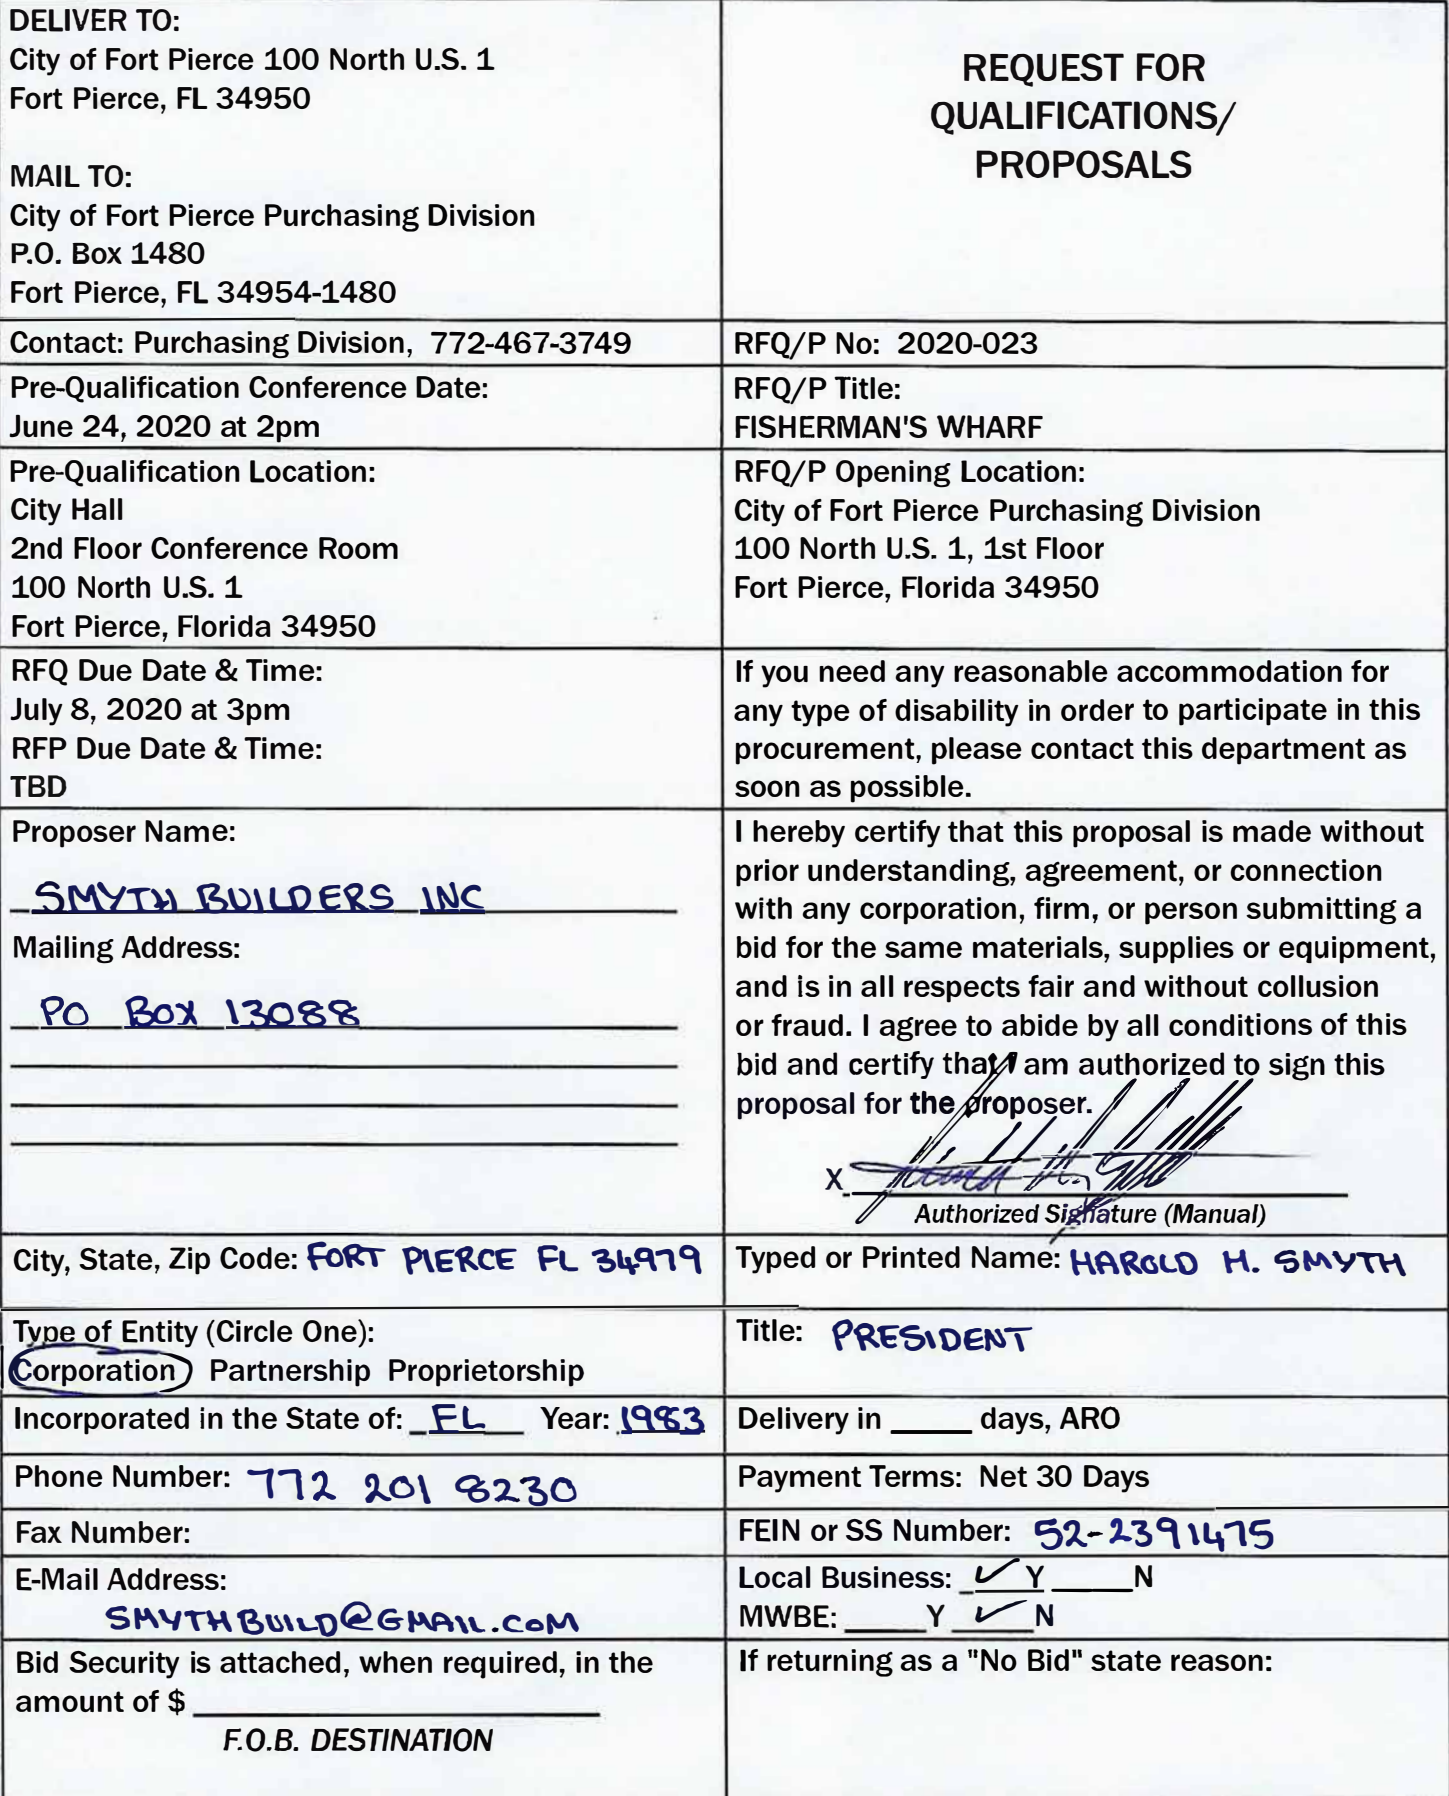 DELIVER TO:
City of Fort Pierce 100 North U.S. 1
Fort Pierce, FL 34950
MAIL TO:
City of Fort Pierce Purchasing Division
P.O. Box 1480
Fort Pierce, FL 34954-1480
REQUEST FOR
QUALIFICATIONS/
PROPOSALS
Contact: Purchasing Division, 772-467-3749
RFQ/P No: 2020-023
Pre-Qualification Conference Date:
June 24, 2020 at 2pm
RFQ/P Title:
FISHERMAN'S WHARF
Pre-Qualification Location:
City Hall
2nd Floor Conference Room
100 North U.S. 1
Fort Pierce, Florida 34950
RFQ/P Opening Location:
City of Fort Pierce Purchasing Division
100 North U.S. 1, 1st Floor
Fort Pierce, Florida 34950
RFQ Due Date & Time:
July 8, 2020 at 3pm
RFP Due Date & Time:
TBD
If you need any reasonable accommodation for
any type of disability in order to participate in this
procurement, please contact this department as
soon as possible.
Proposer Name:
SMYTH BUILDERS INC
Mailing Address:
PO BOX 13088
I hereby certify that this proposal is made without
prior understanding, agreement, or connection
with any corporation, firm, or person submitting a
bid for the same materials, supplies or equipment,
and is in all respects fair and without collusion
or fraud. I agree to abide by all conditions of this
bid and certify that I am authorized to sign this
proposal for the proposer.
X
Authorized Signature (Manual)
City, State, Zip Code: FORT PIERCE FL 34979
Typed or Printed Name: HAROLD H. SMYTH
Type of Entity (Circle One):
Corporation Partnership Proprietorship
Title: PRESIDENT
Incorporated in the State of: FL Year: 1983
Delivery in _____ days, ARO
Phone Number: 772 201 8230
Payment Terms: Net 30 Days
Fax Number:
FEIN or SS Number: 52-2391475
E-Mail Address:
SMYTHBUILD@GMAIL.COM
Local Business: ✓ Y _____ N
MWBE: _____ Y ✓ N
Bid Security is attached, when required, in the
amount of $ _____
F.O.B. DESTINATION
If returning as a "No Bid" state reason: